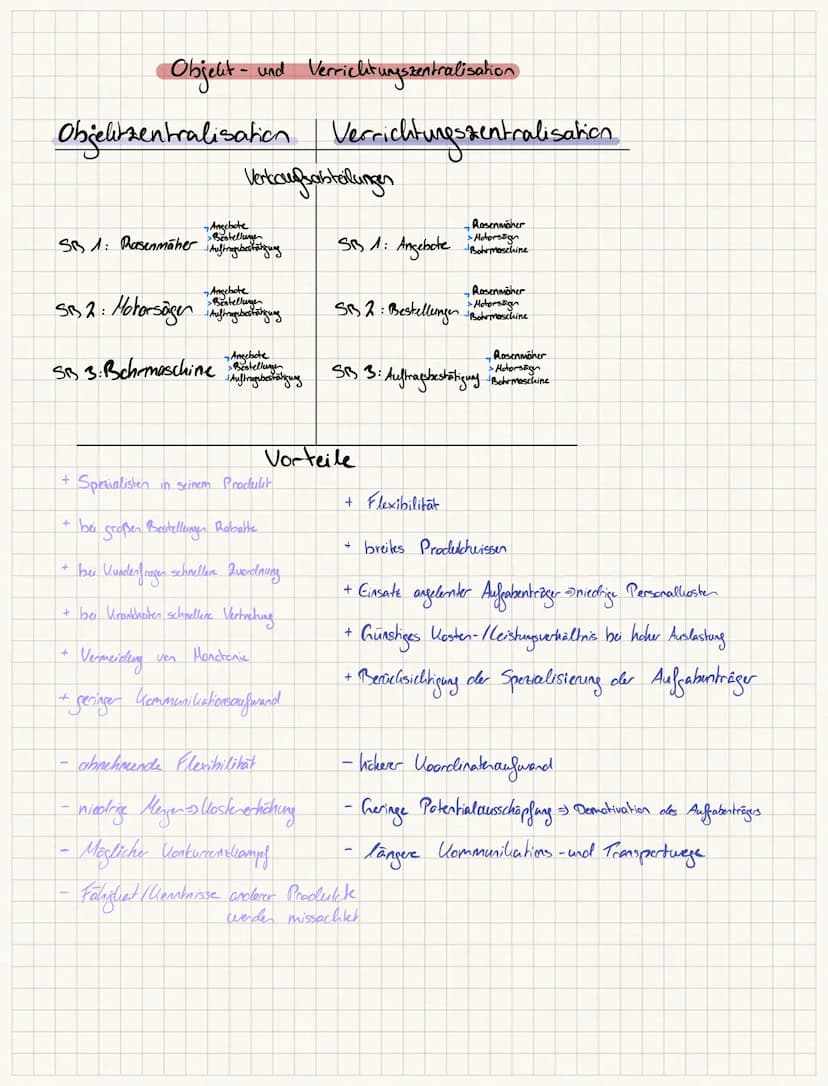 Objekt- und Verrichtungszentralisation
Objektzentralisation
Verrichtungszentralisation
Verkaufsabteilungen
SB 1: Rasenmäher
Angebote
Bestellungen
Auftragsbestätigung
SB 1: Angebote
Rasenmäher
Motorsägn
Bohrmaschine
SB 2: Motorsägen
Angebote
Bestellungen
Auftragsbestätigung
SB 2: Bestellungen
Rasenmäher
Motorsägn
Bohrmaschine
SB 3: Bohrmaschine
Angebote
Bestellungen
Auftragsbestätigung
SB 3: Auftragsbestätigung
Rasenmäher
Motorsägn
Bohrmaschine
Vorteile
+ Spezialisten in seinem Produkt
+ bei großen Bestellungen Rabatte
+ bei Kundenfragen schnellere Zuordnung
+ bei Krankheiten schnellere Vertretung
+ Vermeidung von Monotonie
+ geringer Kommunikationsaufwand
+ Flexibilität
+ breites Produktwissen
+ Einsatz angelernter Aufgabenträger ⇒ niedrige Personalkosten
+ Günstiges Kosten-/Leistungsverhältnis bei hoher Auslastung
+ Berücksichtigung der Spezialisierung der Aufgabenträger
- abnehmende Flexibilität
- niedrige Mengen ⇒ Kostenerhöhung
- Möglicher Konkurrenzkampf
- Fähigkeit/Kenntnisse anderer Produkte
werden missachtet
- höherer Koordinatenaufwand
- Geringe Potentialausschöpfung ⇒ Demotivation des Aufgabenträgers
- längere Kommunikations- und Transportwege